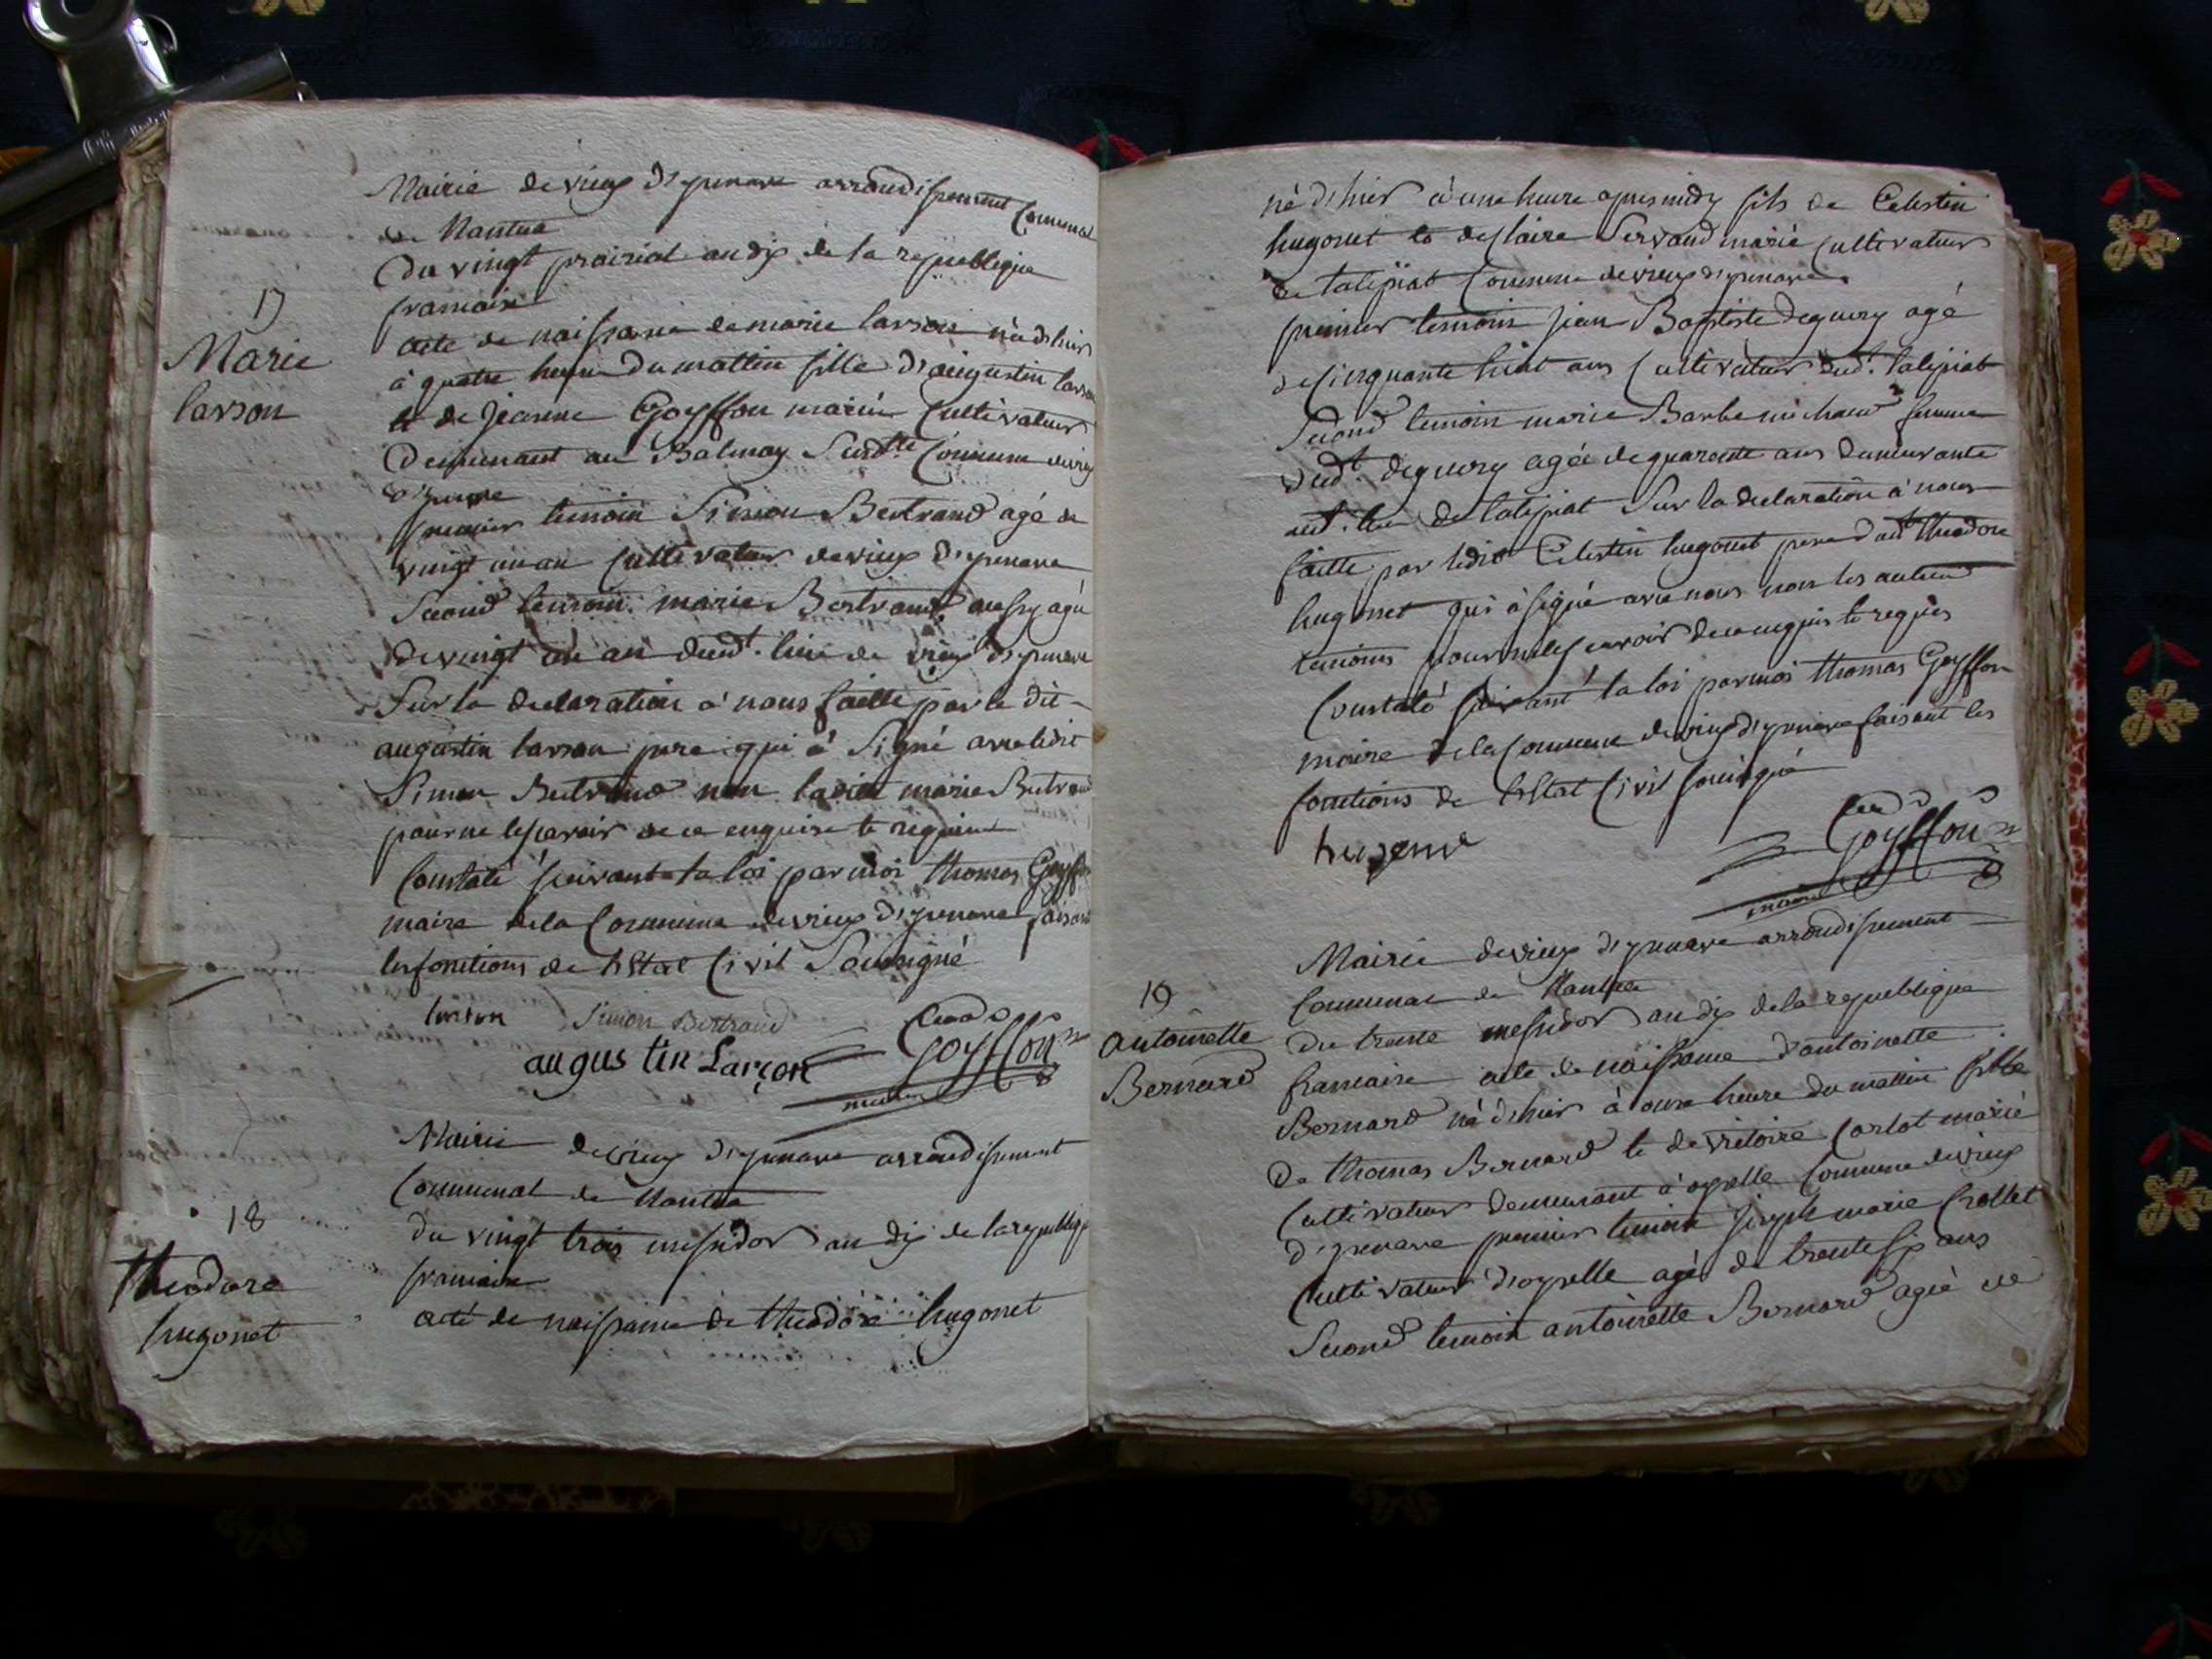 Mairie de vieux d'ysenave arrondissement Communal
de Nantua
Du vingt prairial an dix de la republique
francaise
17
Marie
larson
acte de naissance de marie larson née d'hier
à quatre heure du mattin fille d'augustin larson
et de jeanne Goyffon mariés Cultivateur
Demeurant au Balmay Susdtte Commune de vieux
d'ysenave
premier temoin Simon Bertrand agé de
vingt un an Cultivateur de vieux d'ysenave
Second temoin marie Bertrand aussy agée
de vingt un an dudt. lieu de vieux d'ysenave
Sur la declaration à nous faitte par le dit
augustin larson pere qui à Signé avec ledit
Simon Bertrand non ladite marie Bertrand
pour ne le scavoir de ce enquise et requise
Constaté suivant la loi par moi thomas Goyffon
maire de la Commune de vieux d'ysenave faisant
les fonctions de l'Etat Civil Soussigné
Simon Bertrand
augustin Larçon
Goyffon
maire
Mairie de vieux d'ysenave arrondissement
Communal de Nantua
18
theodore
hugonet
du vingt trois messidor an dix de la republique
francaise
acte de naissance de theodore hugonet
né d'hier à une heure apres midy fils de Celestin
hugonet et de claire Servand marié Cultivateur
de talipiat Commune de vieux d'ysenave
premier temoin jean Baptiste deguery agé
de Cinquante huit ans Cultivateur dudt. talipiat
Second temoin marie Barbe michaud femme
dudt. deguery agée de quarante ans demeurante
audt. lieu de talipiat Sur la declaration à nous
faitte par ledit Celestin hugonet pere dudt theodore
hugonet qui à signé avec nous non les autres
temoins pour ne le scavoir de ce enquis et requis
Constaté suivant la loi par moi thomas Goyffon
maire de la Commune de vieux d'ysenave faisant les
fonctions de l'Etat Civil soussigné
Goyffon
maire
Mairie de vieux d'ysenave arrondissement
Communal de Nantua
19
antoinette
Bernard
du trente messidor an dix de la republique
francaise acte de naissance d'antoinette
Bernard né d'hier à onze heure du mattin fille
de thomas Bernard et de victoire Carlot marié
Cultivateur demeurant à oyselle Commune de vieux
d'ysenave premier temoin joseph marie Crollet
Cultivateur d'oyselle agé de trente six ans
Second temoin antoinette Bernard agée de